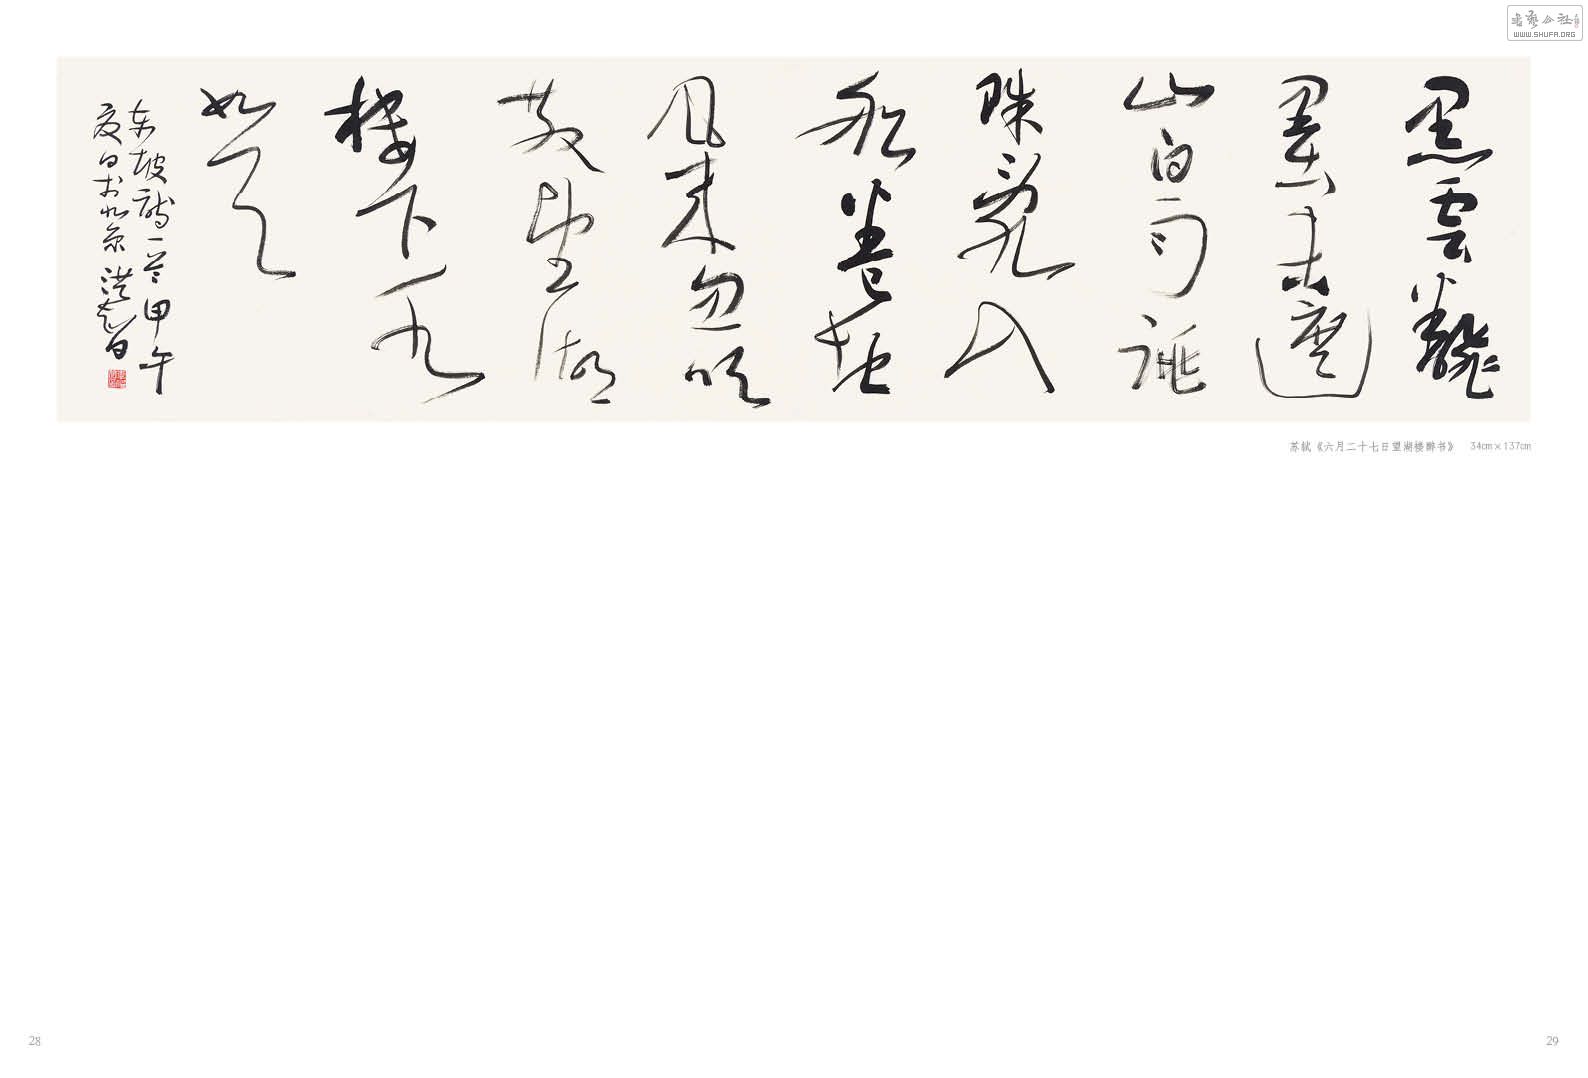 黑雲飜
墨未遮
山白雨跳
珠亂入
船卷地
风来忽吹
散望湖
楼下水
如天
东坡诗一首甲午
夏日于北京
苏轼《六月二十七日望湖楼醉书》 34cm×137cm
书艺公社
WWW.SHUFA.ORG
28
29